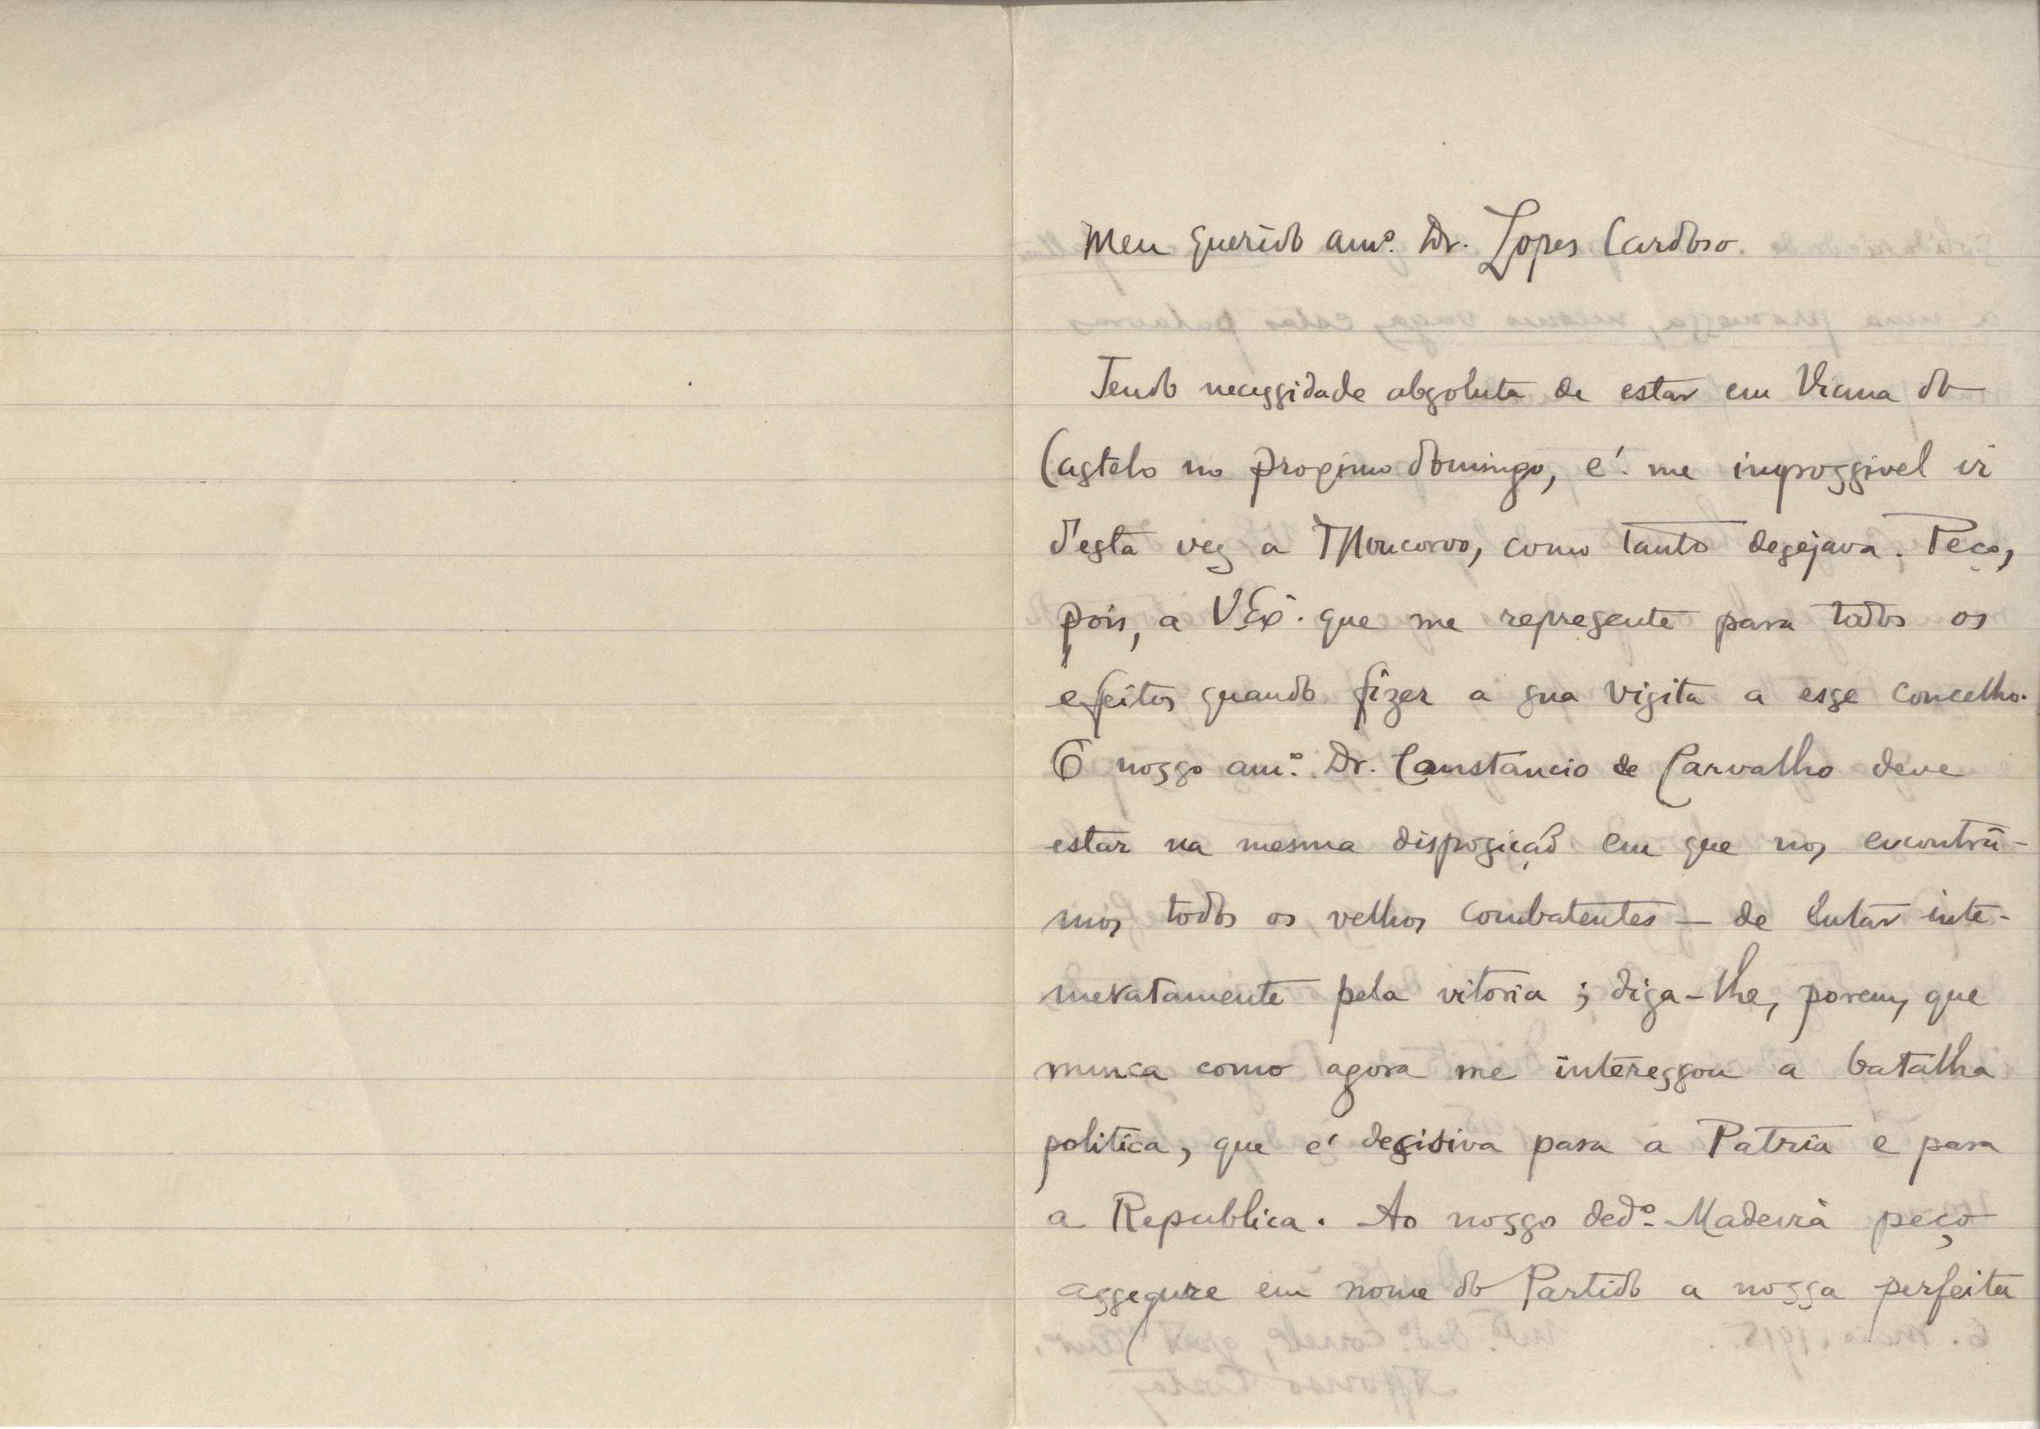 Meu querido amº. Dr. Lopes Cardoso.
Tendo necessidade absoluta de estar em Viana do
Castelo no proximo domingo, é-me impossivel ir
d'esta vez a Moncorvo, como tanto desejava. Peço,
pois, a V. Exª. que me represente para todos os
efeitos quando fizer a sua visita a esse concelho.
O nosso amº. Dr. Constancio de Carvalho deve
estar na mesma disposição em que nos encontrá-
mos todos os velhos combatentes — de lutar inte-
meratamente pela vitoria; diga-lhe, porem, que
nunca como agora me interessou a batalha
politica, que é decisiva para a Patria e para
a Republica. Ao nosso dedº. Madeira peço
assegure em nome do Partido a nossa perfeita